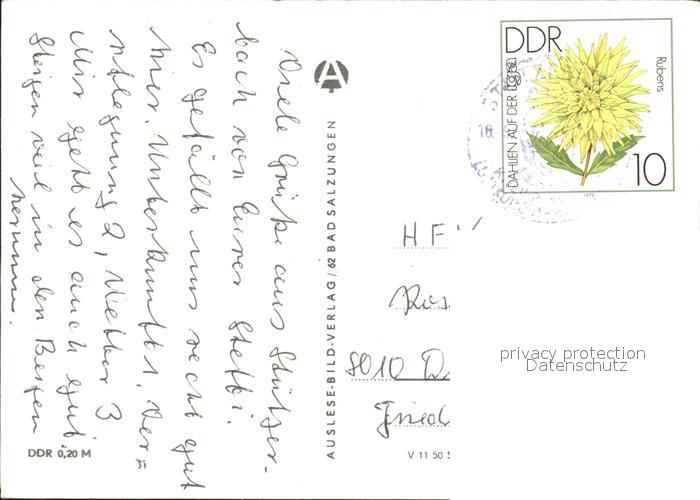 Viele Grüße aus Stützer-
bach von Eurer Steffi.
Es gefällt uns recht gut
hier. Unterkunft 1, Ver=
pflegung 2, Wetter 3
Mir geht es auch gut.
Steigen viel in den Bergen
herum.
DDR 0,20 M
AUSLESE-BILD-VERLAG/62 BAD SALZUNGEN
DDR
DAHLIEN AUF DER
Rubens
10
1979
H F
8010 D
Fried
V 11 50
privacy protection
Datenschutz